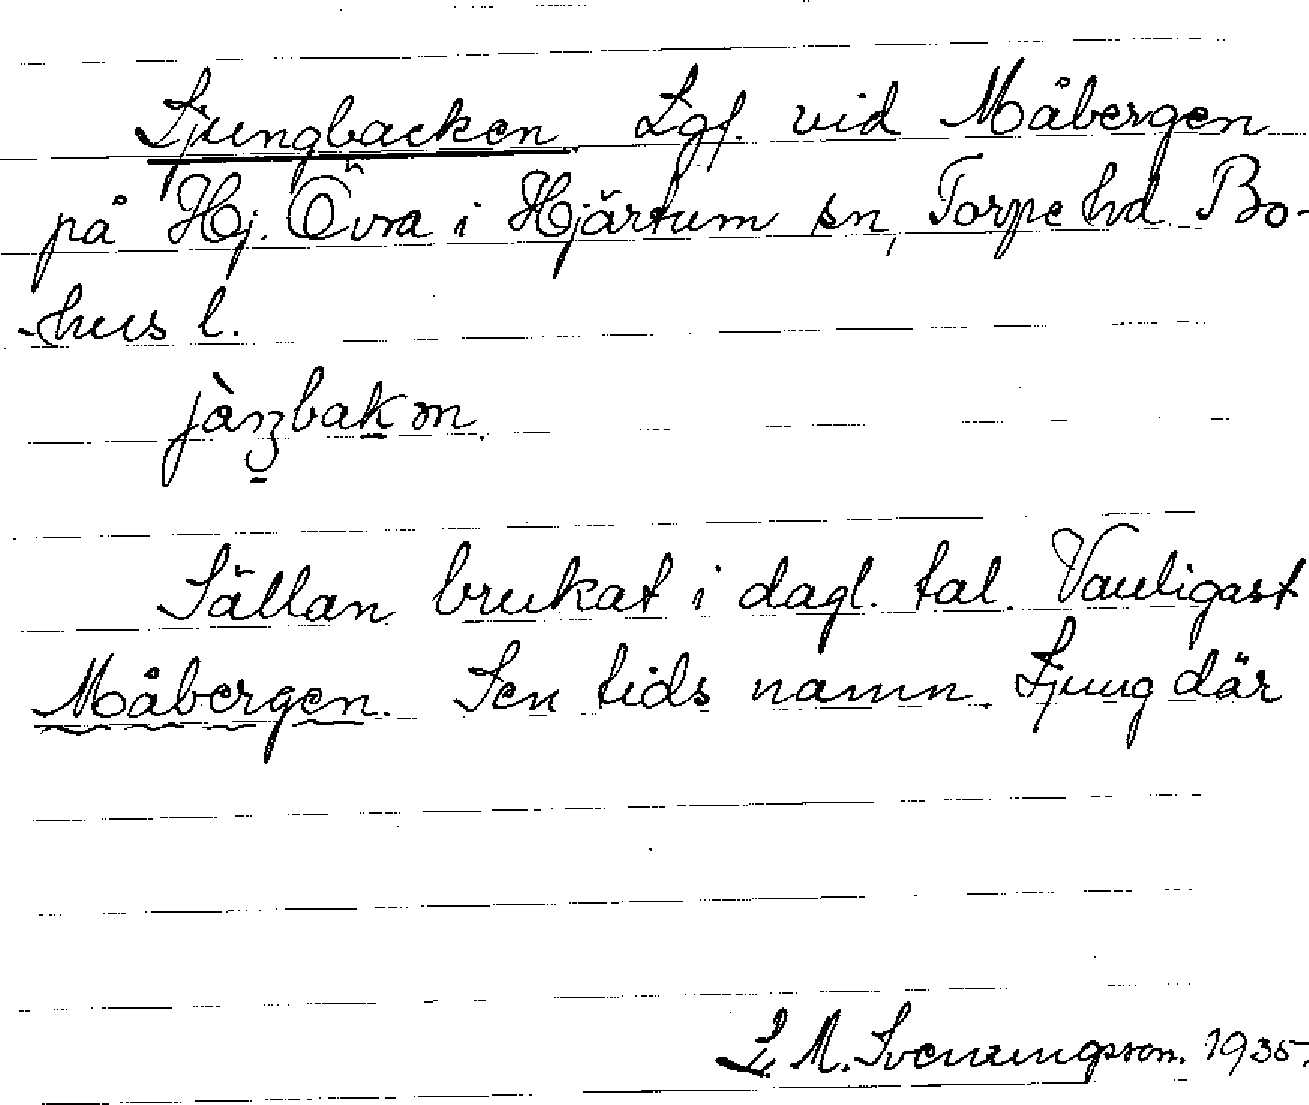 Ljungbacken Lgf. vid Måbergen
på Hj. Övra i Hjärtum sn, Torpe hd. Bo-
-hus l.
Sällan brukat i dagl. tal. Vanligast
Måbergen. Sen tids namn. Ljung där
L. M. Svenungsson. 1935.